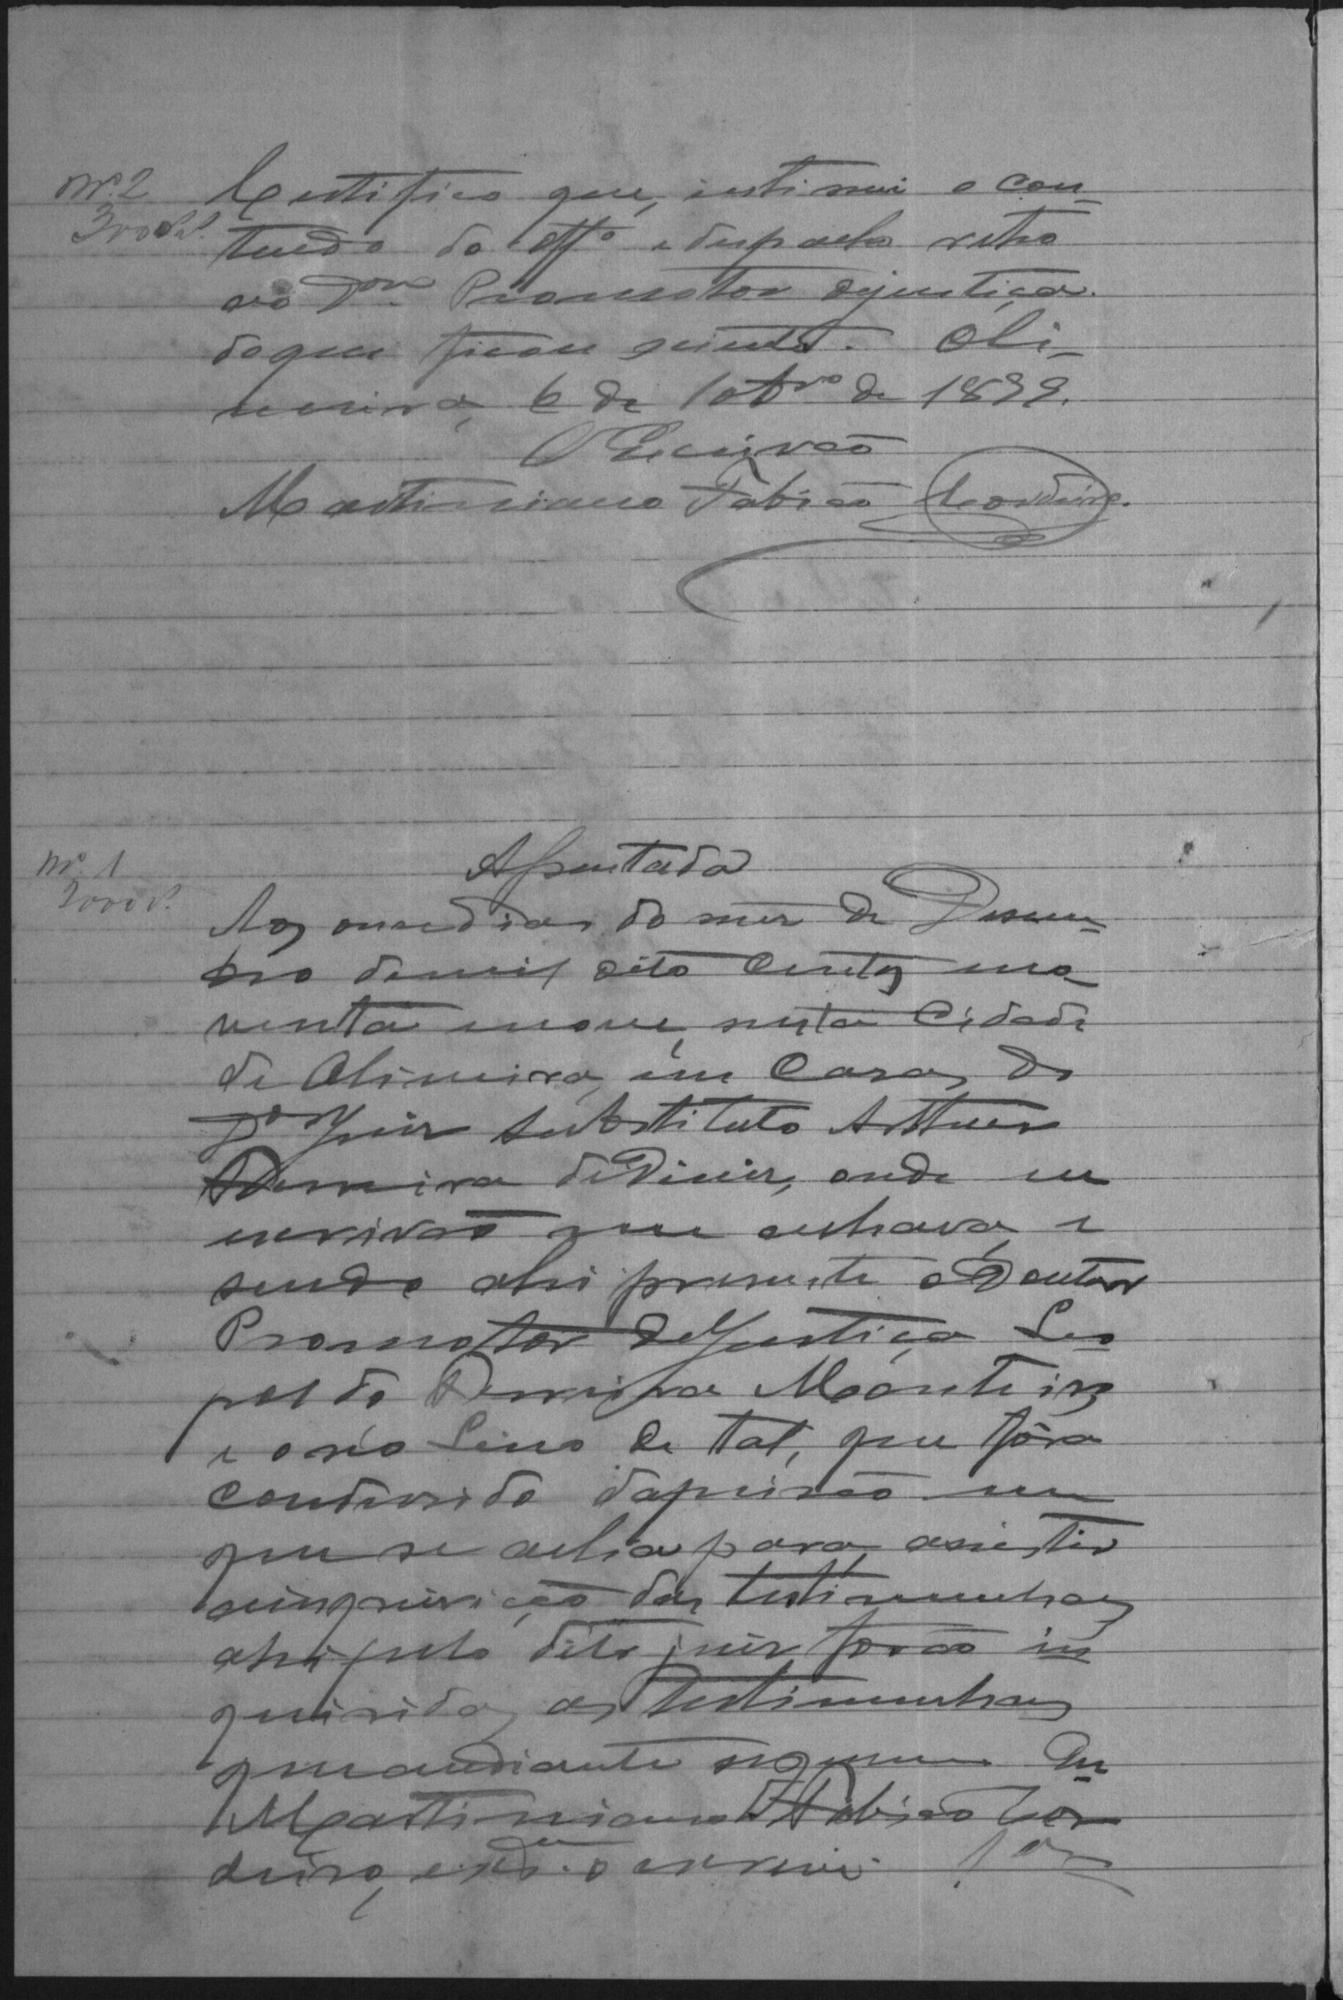 Nº 2
Certifico que, intimei o con-
teudo do off.º e despacho retro
ao Dor. Promotor dejustiça.
doque ficou sciente. Oli-
veira, 6 de 10brº de 1899.
O Escrivão
Martiniano Fabião Cordeiro.
Nº 1
Assentada
Aos onse dias do mes de Desem-
bro demil oito Centos no-
venta enove, nesta Cidade
de Oliveira, em Casa, do
Juiz Substituto Arthur
dDiniz, onde eu
escrivão me achava, e
sendo ahi presente o Doutor
Promotor deJustiça Leo
poldo Ferreira Monteiro
e oréo Lino de tal, que fôra
condusido daprisão em
que se acha para, assistir
ainquirição das testimunhas,
ahi pelo dito juiz forão in
quiridas, as testimunhas
que audiante seguem. Eu
Martiniano Fabião Cor
deiro, o escrevi.